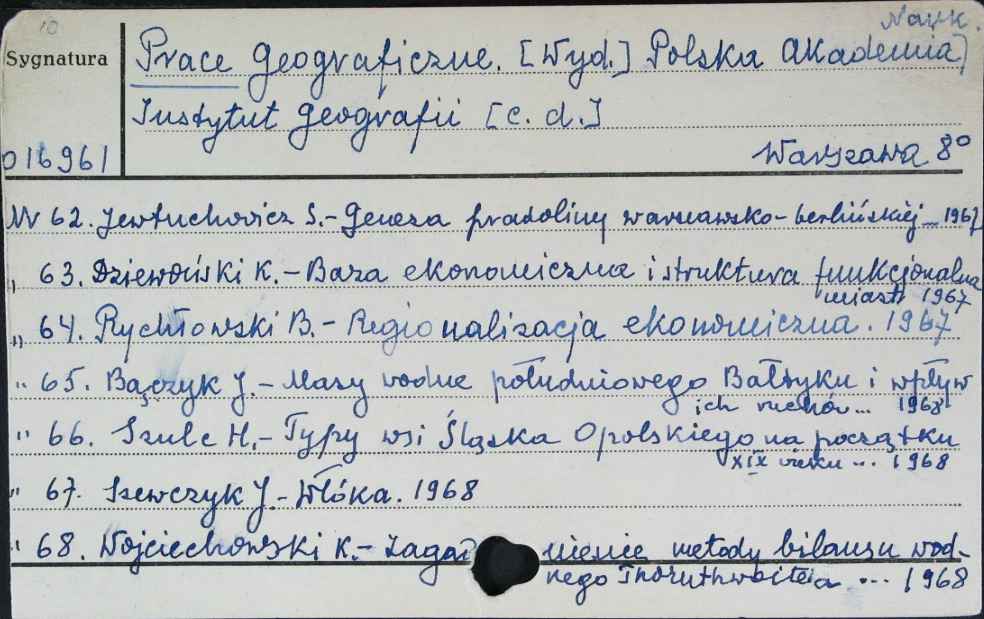 10
Nauk.
Sygnatura
Prace Geograficzne. [Wyd.] Polska Akademia
Instytut Geografii [c. d.]
016961
Warszawa 8°
Nr 62. Jewtuchowicz S. - Geneza pradoliny warszawsko-berlińskiej 1967
" 63. Dziewoński K. - Baza ekonomiczna i struktura funkcjonalna
miast 1967
" 64. Rychłowski B. - Regionalizacja ekonomiczna. 1967
" 65. Bączyk J. - Masy wodne południowego Bałtyku i wpływ
ich ruchów ... 1968
" 66. Szulc H. - Typy wsi Śląska Opolskiego na początku
XIX wieku ... 1968
" 67. Szewczyk J. - Włóka. 1968
" 68. Wojciechowski K. - Zagad nienie metody bilansu wod-
nego Thornthwaite'a ... 1968